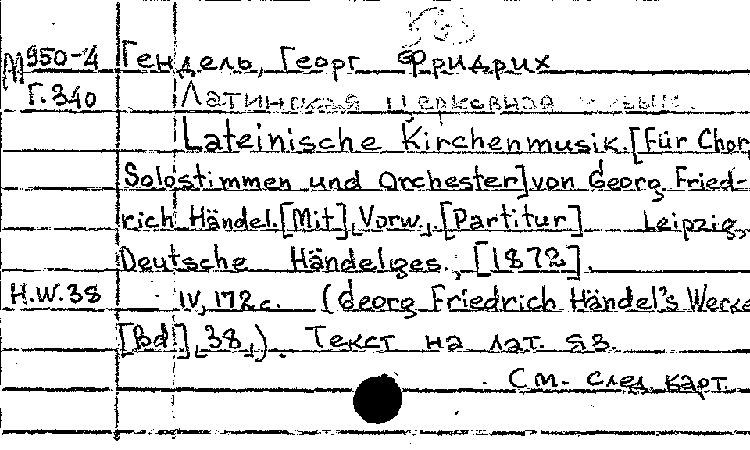 М950-4 Гендель, Георг Фридрих
Г.340 Латинская церковная
Lateinische Kirchenmusik. [Für Chor,
Solostimmen und Orchester] von Georg Fried-
rich Händel. [Mit] Vorw. [Partitur] Leipzig,
Deutsche Händelges., [1872].
H.W.38 IV, 172 с. (Georg Friedrich Händel's Werke
[Bd] 38,). Текст на лат. яз.
См. след. карт